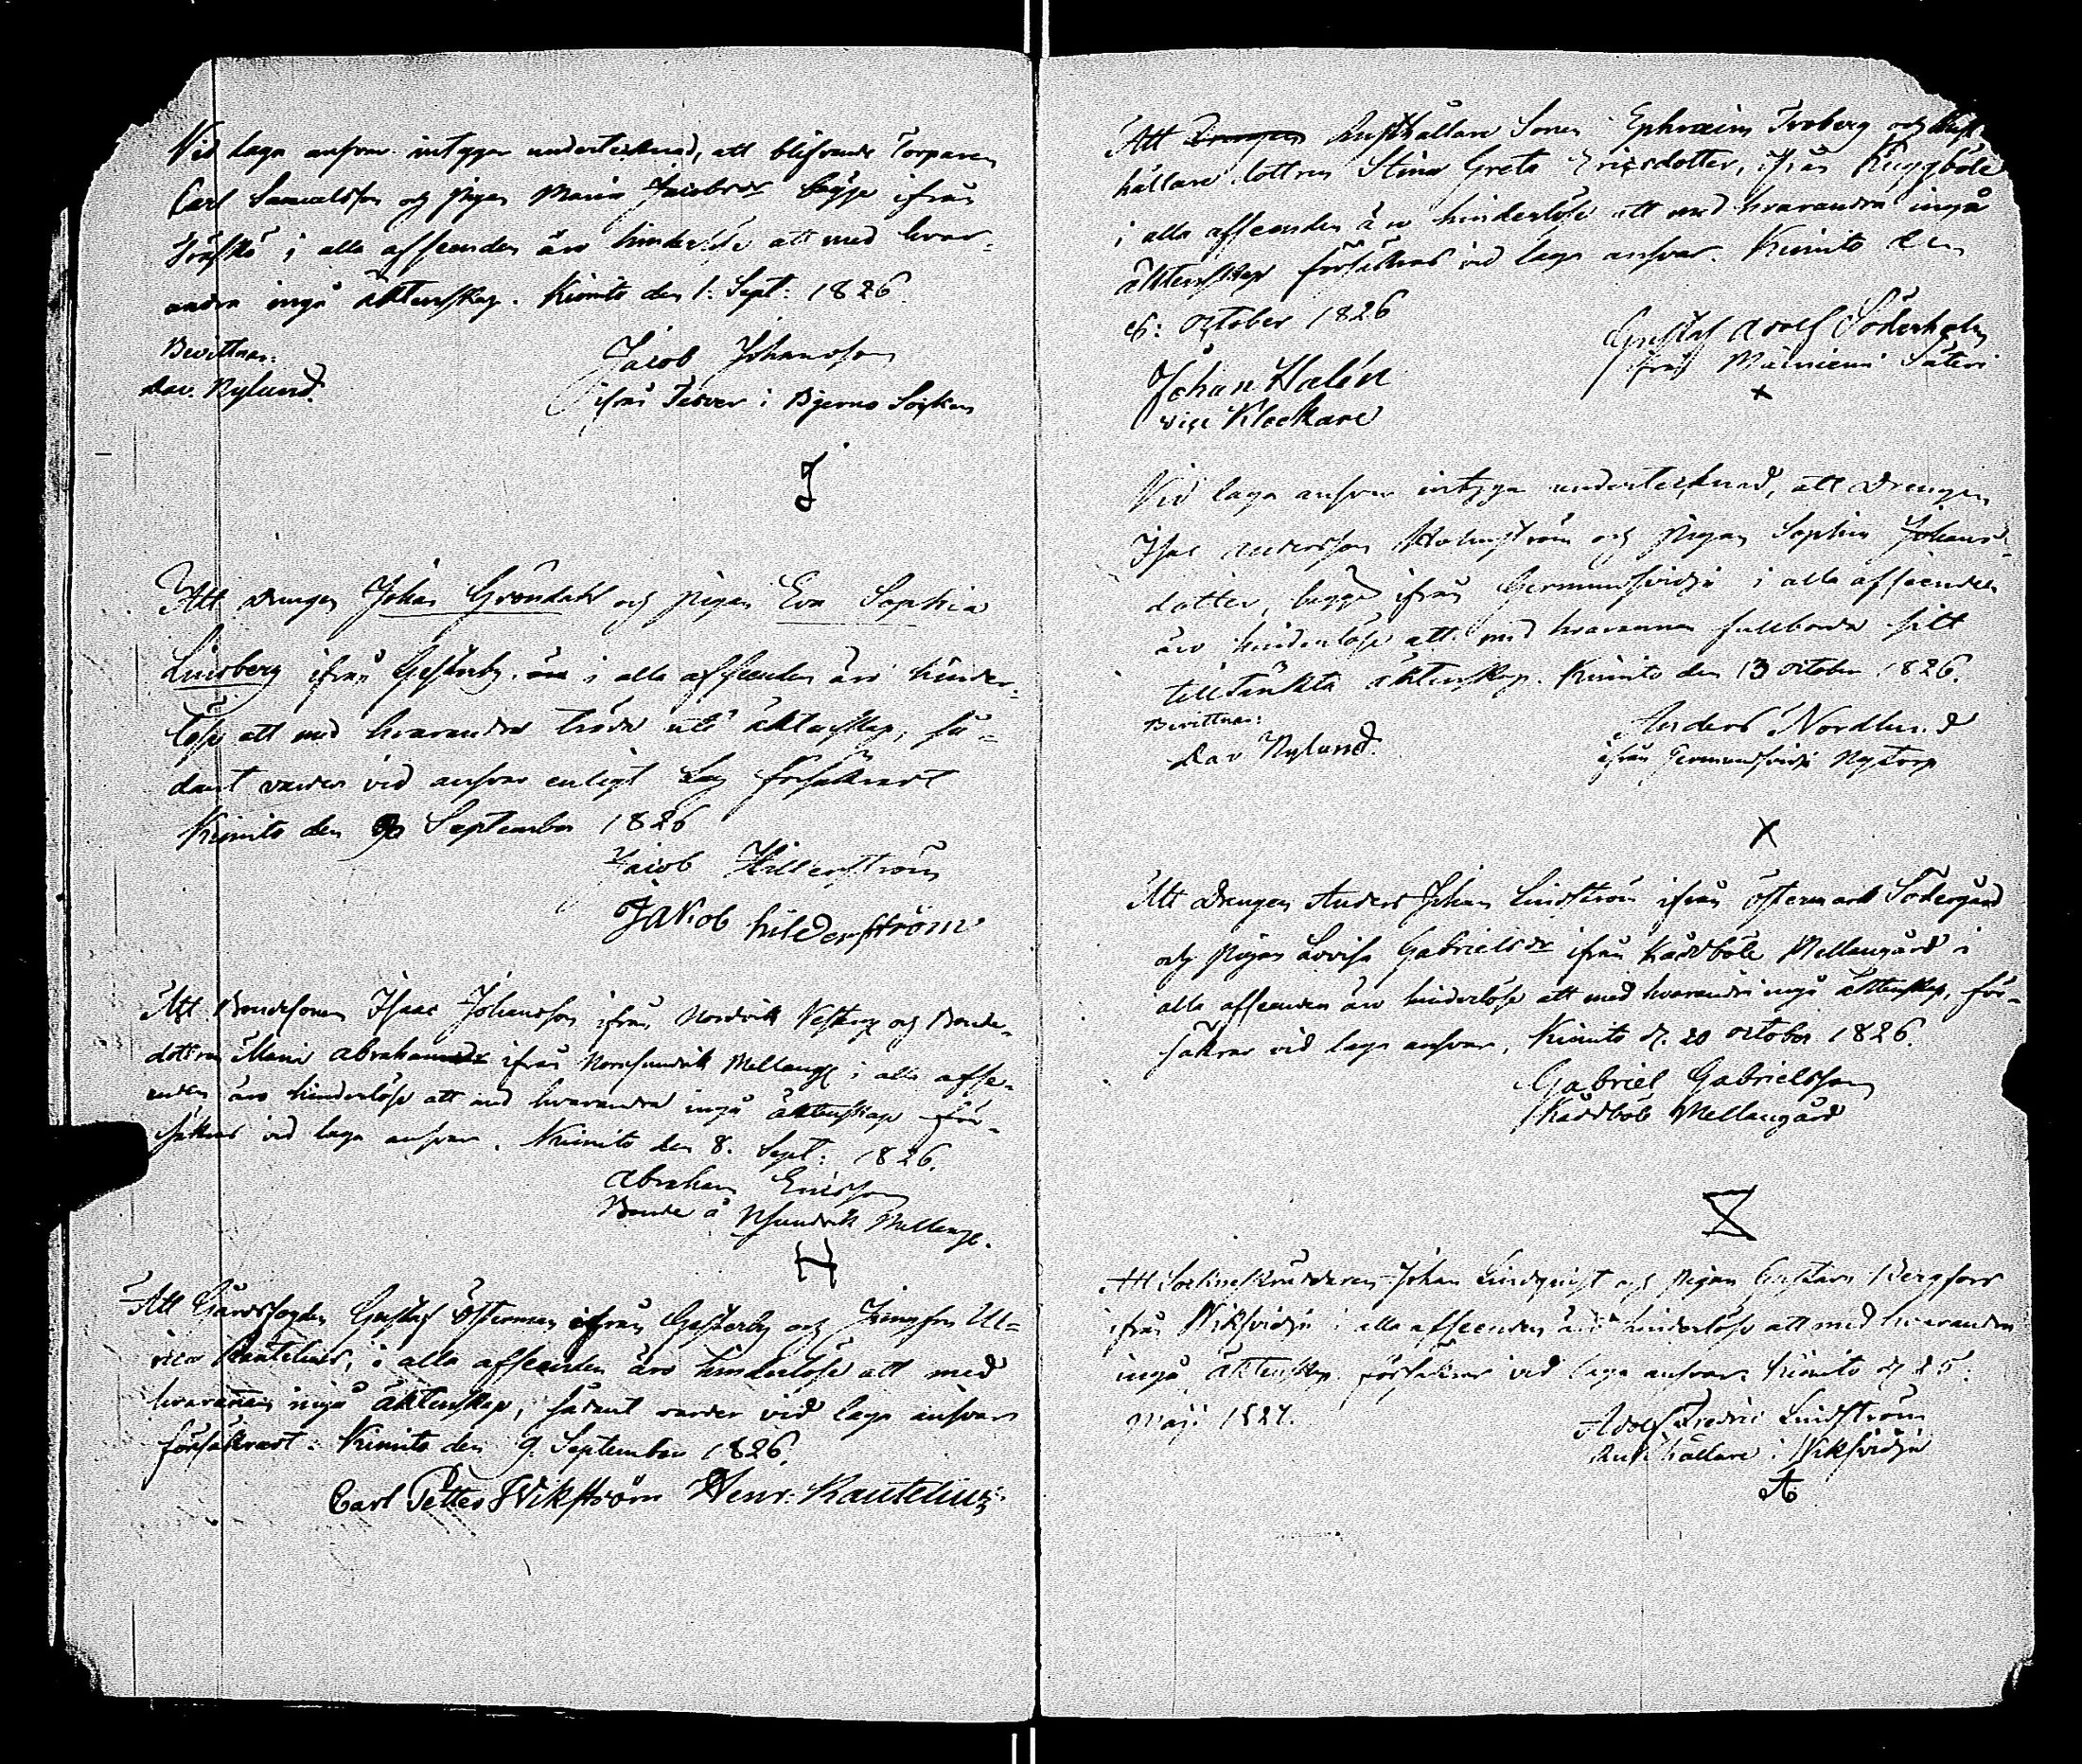 Vid laga ansvar intygar undertecknad, att blifvande Torparen
Carl Samuelsson och pigan Maria Jacobsdr bägge ifrån
Träskö i alla afseenden äro hinderlöse att med hvar-
andra ingå äktenskap. Kimito den 1. Sept: 1826.
Bevittnar:
Dav. Nylund.
Jacob Johansson
ifrån Tesver i Bjerno Socken
J
Att drengen Johan Gröndahl och pigan Eva Sophia
Lindberg ifrån Gesterby, i alla afseenden äro hinder-
löse att med hvarandra träda uti äktenskap, så-
dant varder vid ansvar enligt Lag försäkradt
Kimito den September 1826
Jacob Hillerström
JAKob hilDerström
Att Bondsonen Isaac Johansson ifrån Nordvik Vesterg och Bonde-
dottren Maria Abrahamsdr ifrån Norrsundvik Mellangd i alla afse-
enden äro hinderlöse att med hvarandra ingå äktenskap för-
säkras vid laga ansvar. Kimito den 8. Sept: 1826.
Abraham Ericsson
Bonde å Nsundvik Mellang.
H
Att Gårdsfogden Gustaf Österman ifrån Gesterby och Jungfru Ul-
rica Rautelius, i alla afseenden äro hinderlöse att med
hvarannan ingå äktenskap, sådant varder vid laga ansvar
försäkradt. Kimito den 9. September 1826.
Carl Petter Wikström Henr. Rautelius
Att Drengen Rusthållare Sonen Ephraim Froberg och Rust-
hållare dottren Stina Greta Ericsdotter, ifrån Ruggböle
i alla afseenden äro hinderlöse att med hvarandra ingå
äktenskap försäkras vid laga ansvar. Kimito den
6: October 1826
Gustaf Adolf Söderholm
ifrån Mälniemi Säteri
x
Johan Halén
vice Klockare
Vid laga ansvar intygar undertecknad, att Drengen
Isac Andersson Holmström och pigan Sophia Johans-
dotter, bägge ifrån Germundsvidja i alla afseenden
äro hinderlöse att med hvarannan fullborda sitt
tilltänkta äktenskap. Kimito den 13 October 1826.
Bevittnar:
Dav Nylund.
Anders Nordlund
ifrån Germundsvidja Nytorp
X
Att Drengen Anders Johan Lindström ifrån Östermark Södergård
och pigan Lovisa Gabrielsdr ifrån Kårdböle Mellangård i
alla afseenden äro hinderlöse att med hvarandra ingå äktenskap, för-
säkras vid laga ansvar, Kimito d. 20 October 1826.
Gabriel Gabrielsson
Kårdböle Mellangård
Att Sockneskräddaren Johan Lindqvist och pigan Gustava Bergfors
ifrån Viksvidja i alla afseenden äro hinderlöse att med hvarandra
ingå äktenskap försäkras vid laga ansvar Kimito d. 25.
Maji 1827.
Adolf Fredric Lindström
Rusthållare i Viksvidja
A